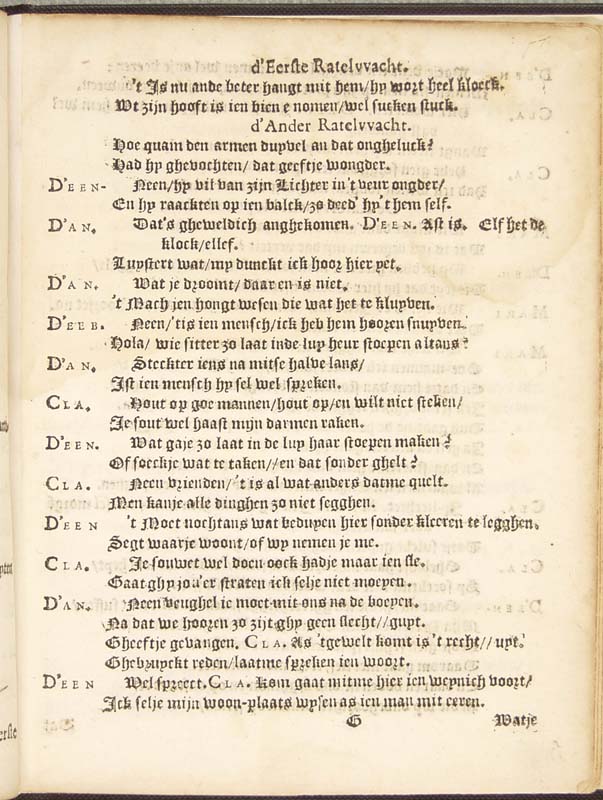 d'Eerste Ratelvvacht.
't Is nu ande beter hangt mit hem/hy wort heel kloeck.
Wt zijn hooft is ien bien e nomen/wel sucken stuck.
d'Ander Ratelvvacht.
Hoe quam den armen duyvel an dat ongheluck?
Had hy ghevochten/ dat geeftje wongder.
D'EEN- Neen/hy vil van zijn Lichter in't veur ongder/
En hy raackten op ien balck/zo deed' hy't hem self.
D'AN. Dat's gheweldich anghekomen. D'EEN. Ast is. Elf het de
klock/ellef.
Luystert wat/my dunckt ick hoor hier yet.
D'AN. Wat je droomt/daar en is niet.
't Mach jen hongt wesen die wat het te kluyven.
D'EEB. Neen/'tis ien mensch/ick heb hem hooren snuyven.
Hola/ wie sitter zo laat inde luy heur stoepen altans?
D'AN. Steckter iens na mitse halve lans/
Ist ien mensch hy sel wel spreken.
CLA. Hout op goe mannen/hout op/en wilt niet steken/
Je sout wel haast mijn darmen raken.
D'EEN. Wat gaje zo laat in de luy haar stoepen maken?
Of soeckje wat te taken//en dat sonder ghelt?
CLA. Neen vrienden/'t is al wat anders datme quelt.
Men kanje alle dinghen zo niet segghen.
D'EEN 't Moet nochtans wat beduyen hier sonder kleeren te legghen.
Segt waarje woont/of wy nemen je me.
CLA. Je souwet wel doen oock hadje maar ien sle.
Gaat ghy jou'er straten ick selje niet moeyen.
D'AN. Neen veughel je moet mit ons na de boeyen.
Na dat we hooren zo zijt ghy geen slecht//guyt.
Gheeftje gevangen. CLA. As 'tgewelt komt is 't recht// uyt.
Ghebruyckt reden/laatme spreken ien woort.
D'EEN Wel spreect. CLA. Kom gaat mitme hier ien weynich voort/
Ick selje mijn woon-plaats wysen as ien man mit eeren.
G Watje